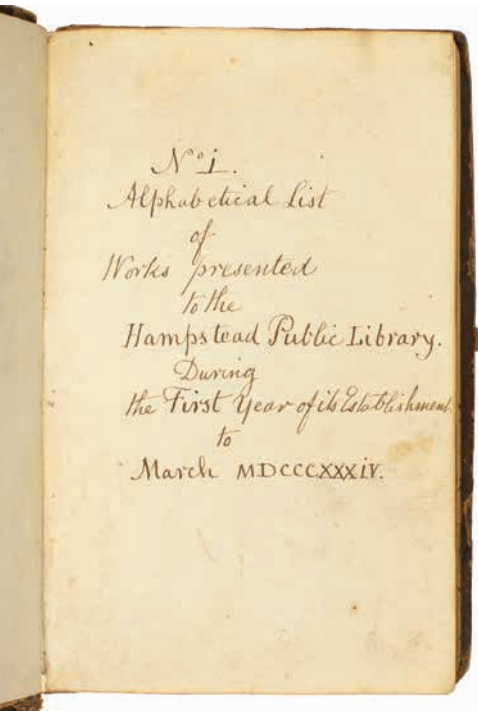 No i.
Alphabetical List
of
Works presented
to the
Hampstead Public Library.
During
the First Year of its Establishment
to
March MDCCCXXXiV.